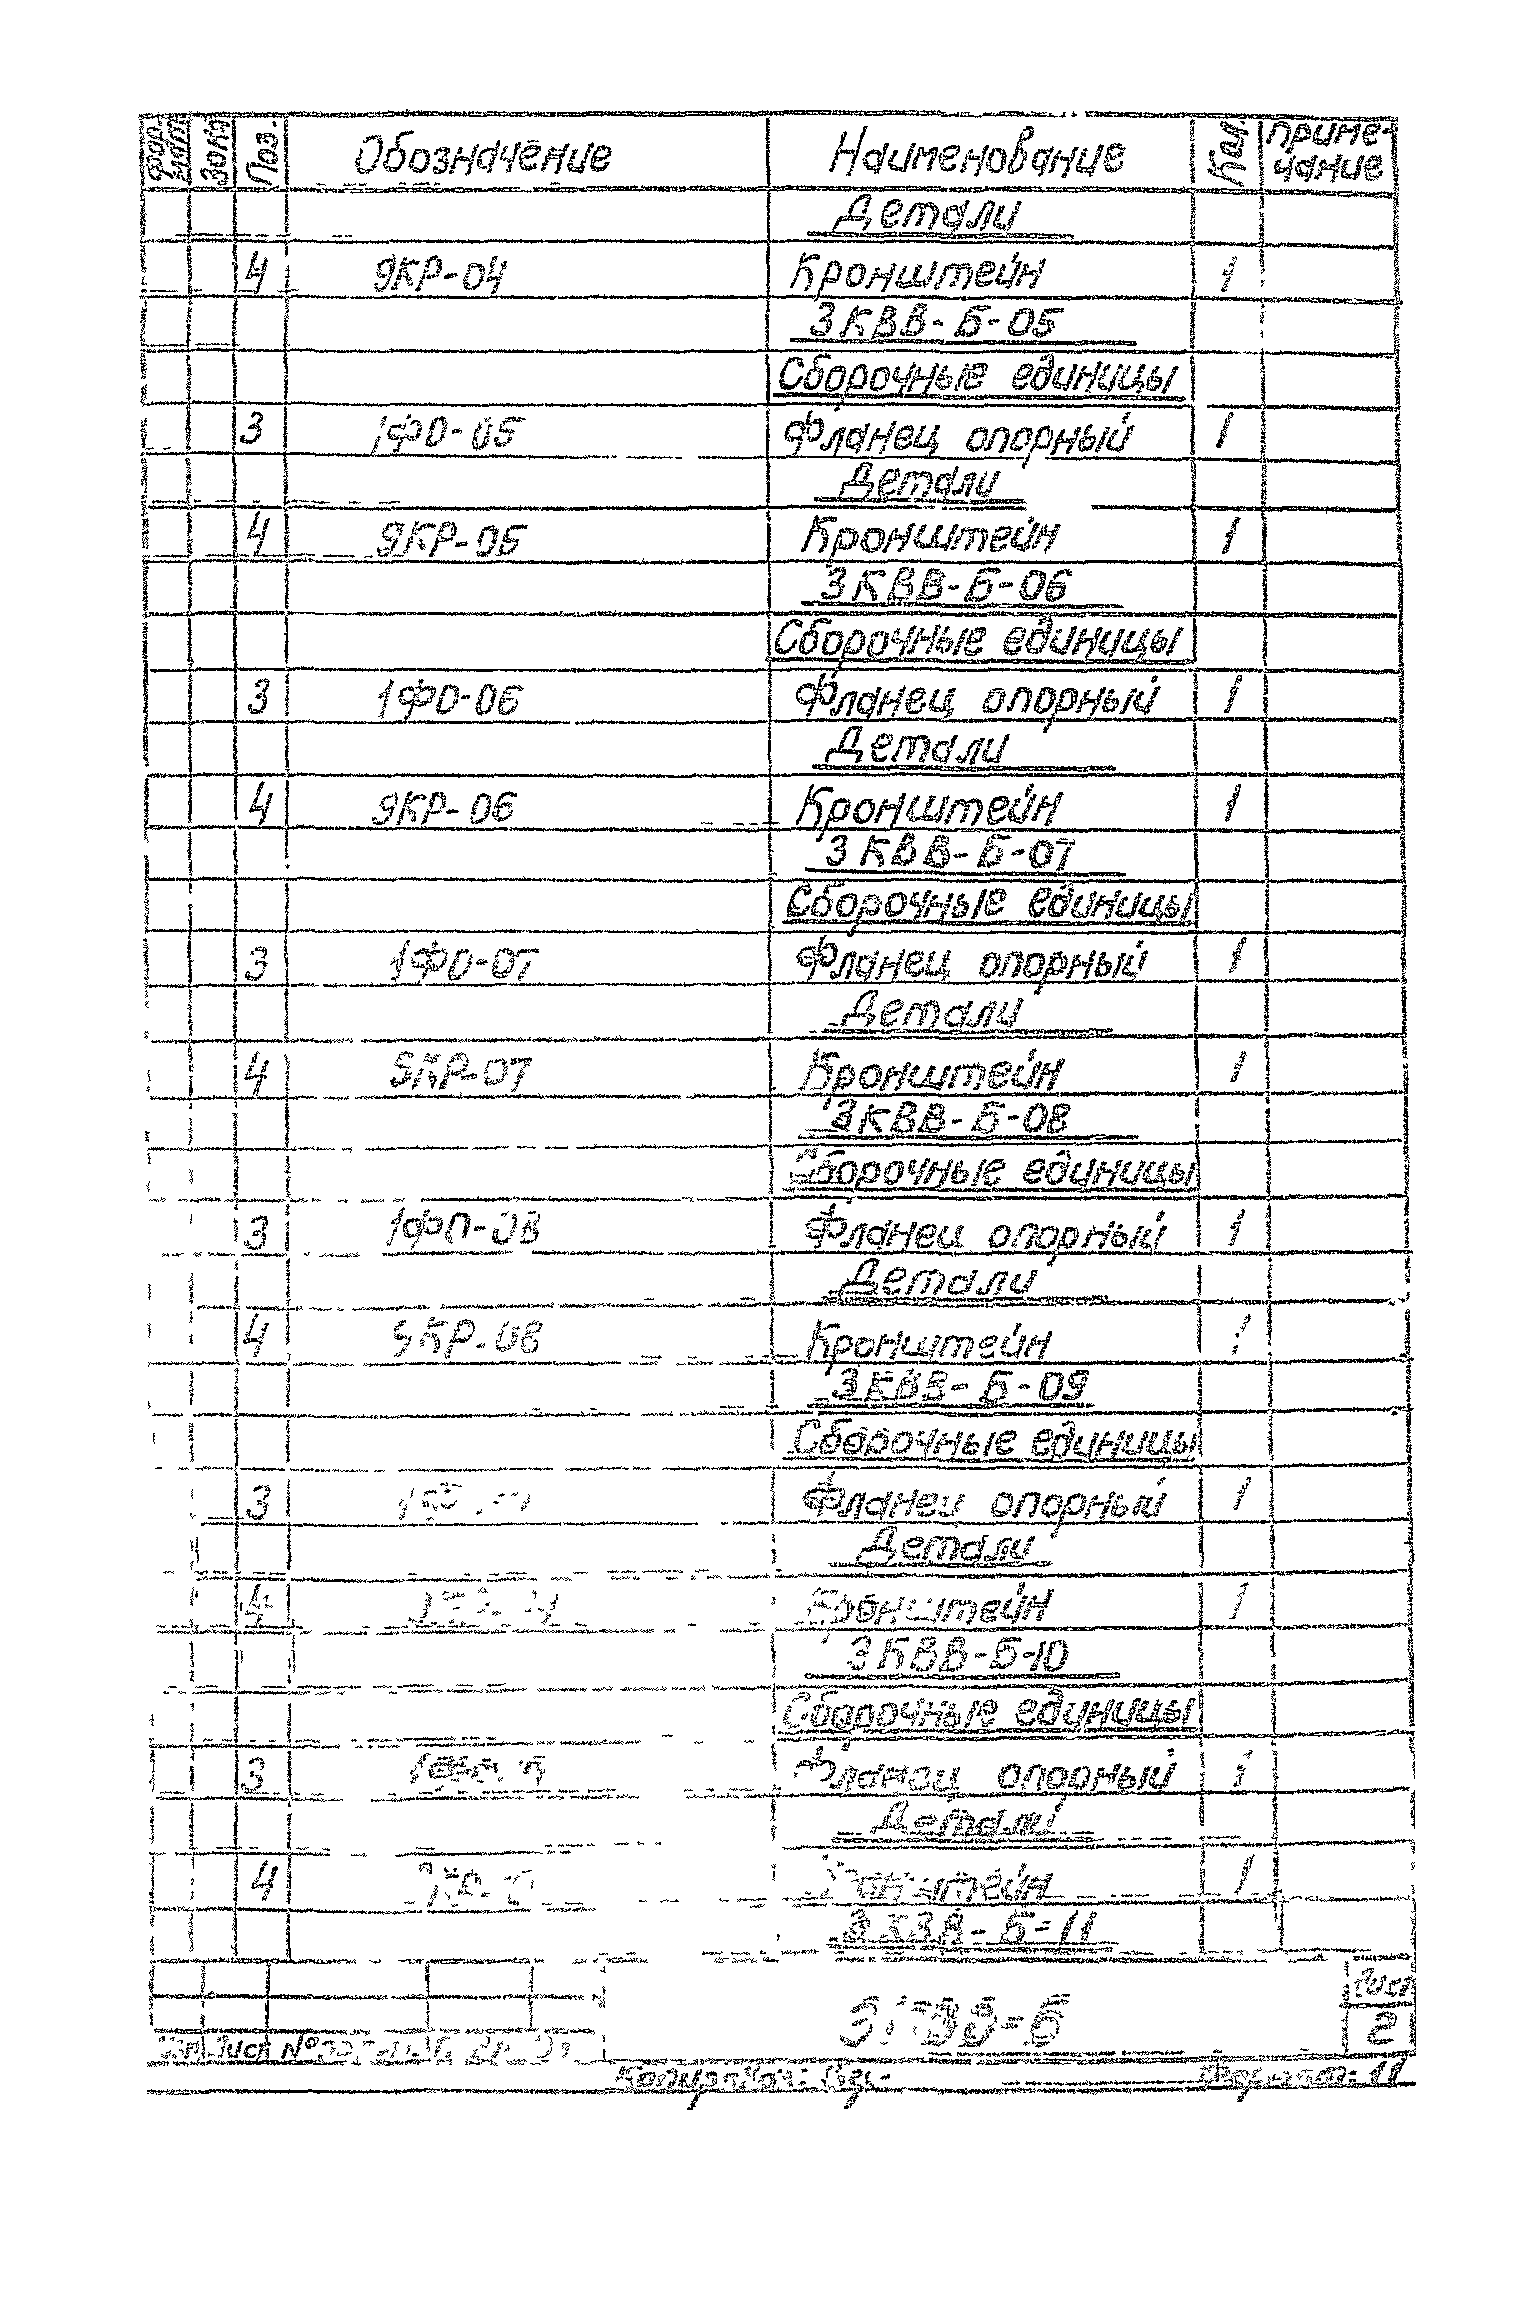 Формат Зона Поз. Обозначение Наименование Кол. Приме-
чание
Детали
4 9КР-04 Кронштейн 1
3КВВ-Б-05
Сборочные единицы
3 1ФО-05 Фланец опорный 1
Детали
4 9КР-05 Кронштейн 1
3КВВ-Б-06
Сборочные единицы
3 1ФО-06 Фланец опорный 1
Детали
4 9КР-06 Кронштейн 1
3КВВ-Б-07
Сборочные единицы
3 1ФО-07 Фланец опорный 1
Детали
4 9КР-07 Кронштейн 1
3КВВ-Б-08
Сборочные единицы
3 1ФО-08 Фланец опорный 1
Детали
4 9КР-08 Кронштейн 1
3КВВ-Б-09
Сборочные единицы
3 Фланец опорный 1
Детали
4 Кронштейн 1
3КВВ-Б-10
Сборочные единицы
3 Фланец опорный 1
Детали
4 Кронштейн 1
3КВВ-Б-11
3КВВ-Б
Лист
2
Лист №
Копировал: Формат: 11